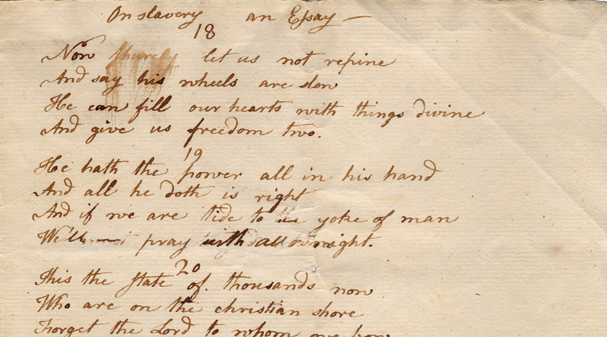 On slavery an Essay —
18
Now let us not repine
And say his wheels are slow
He can fill our hearts with things divine
And give us freedom two.
19
He hath the power all in his hand
And all he doth is right
And if we are tide to the yoke of man
We'll pray with all might.
20
This the State of thousands now
Who are on the christian shore
Forget the Lord to whom we bow